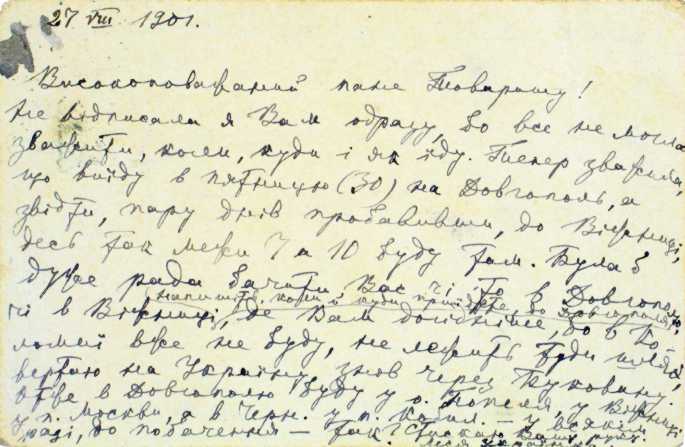 27 VIII 1901.
Високоповажаний пане Товаришу!
Не відписала я Вам одразу, бо все не могла
зважити, коли, куди і як їду. Тепер зважила,
що виїду в пятницю (30) на Довгополь, а
звідти, пару днів пробавивши, до Вижниці,
десь так межи 7 а 10 буду там. Була б
дуже рада бачити Вас чи то в Довгополю,
напишіть, коли й куди приїдете, до Довгополя
чи в Вижниці, де Вам догідніше, бо в Ко-
ломиї вже не буду, не лежить туди шлях,
вертаю на Україну знов через Буковину.
Отже в Довгополю буду у о. Попеля, у Вижниці
у п. Москви, а в Черн. у п. Кобил. – у всякім
разі, до побачення – так? Стискаю Вашу руку.